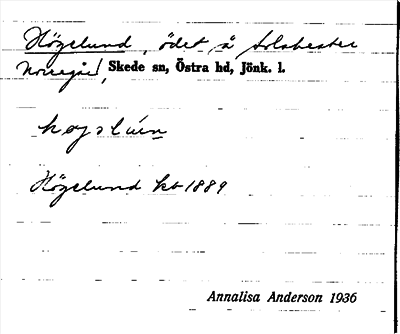 Högelund, ödet, å Solabester
Norregård, Skede sn, Östra hd, Jönk. l.
høgslún
Högelund kb 1889
Annalisa Anderson 1936